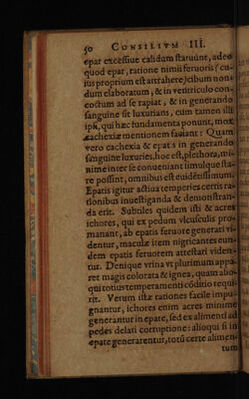 50 CONSILIVM III.
epar excessiue calidum statuunt, adeo
quod epar, ratione nimii feruoris (cu-
ius proprium est attrahere) cibum non-
dum elaboratum, & in ventriculo con-
coctum ad se rapiat, & in generando
sanguine sit luxurians, cum tamen illi
ipsi, qui hæc fundamenta ponunt, mox
cachexiæ mentionem faciant: Quam
vero cachexia & epatis in generando
sanguine luxuries, hoc est, plethora, mi-
nime inter se conueniant simulque sta-
re possint, omnibus est euidentissimum.
Epatis igitur actiua temperies certis ra-
tionibus inuestiganda & demonstran-
da erit. Subtiles quidem isti & acres
ichores, qui ex pedum vlcusculis pro-
manant, ab epatis feruore generati vi-
dentur, maculæ item nigricantes eun-
dem epatis feruorem attestari viden-
tur. Denique vrina vt plurimum appa-
ret magis colorata & ignea, quam abo-
qui totius temperamenti cōditio requi-
rit. Verum istæ rationes facile impu-
gnantur, ichores enim acres minime
generantur in epate, sed ex alimend ad
pedes delati corruptione: alioqui si in
epate generarentur, totū certe alimen-
tum